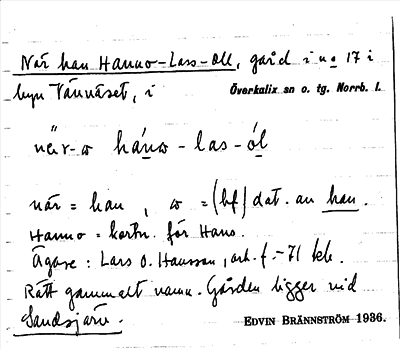 När han Hanno-Lars-Oll, gård i no 17 i
byn Vännäset, i Överkalix sn o. tg. Norrb. l.
när-w háno-las-ól
när = han, w = (bf) dat. av han.
Hanno = kortn. för Hans.
Ägare: Lars O. Hansson, ark. f. -71 kb.
Rätt gammalt namn. Gården ligger vid
Sandsjärv.
EDVIN BRÄNNSTRÖM 1936.